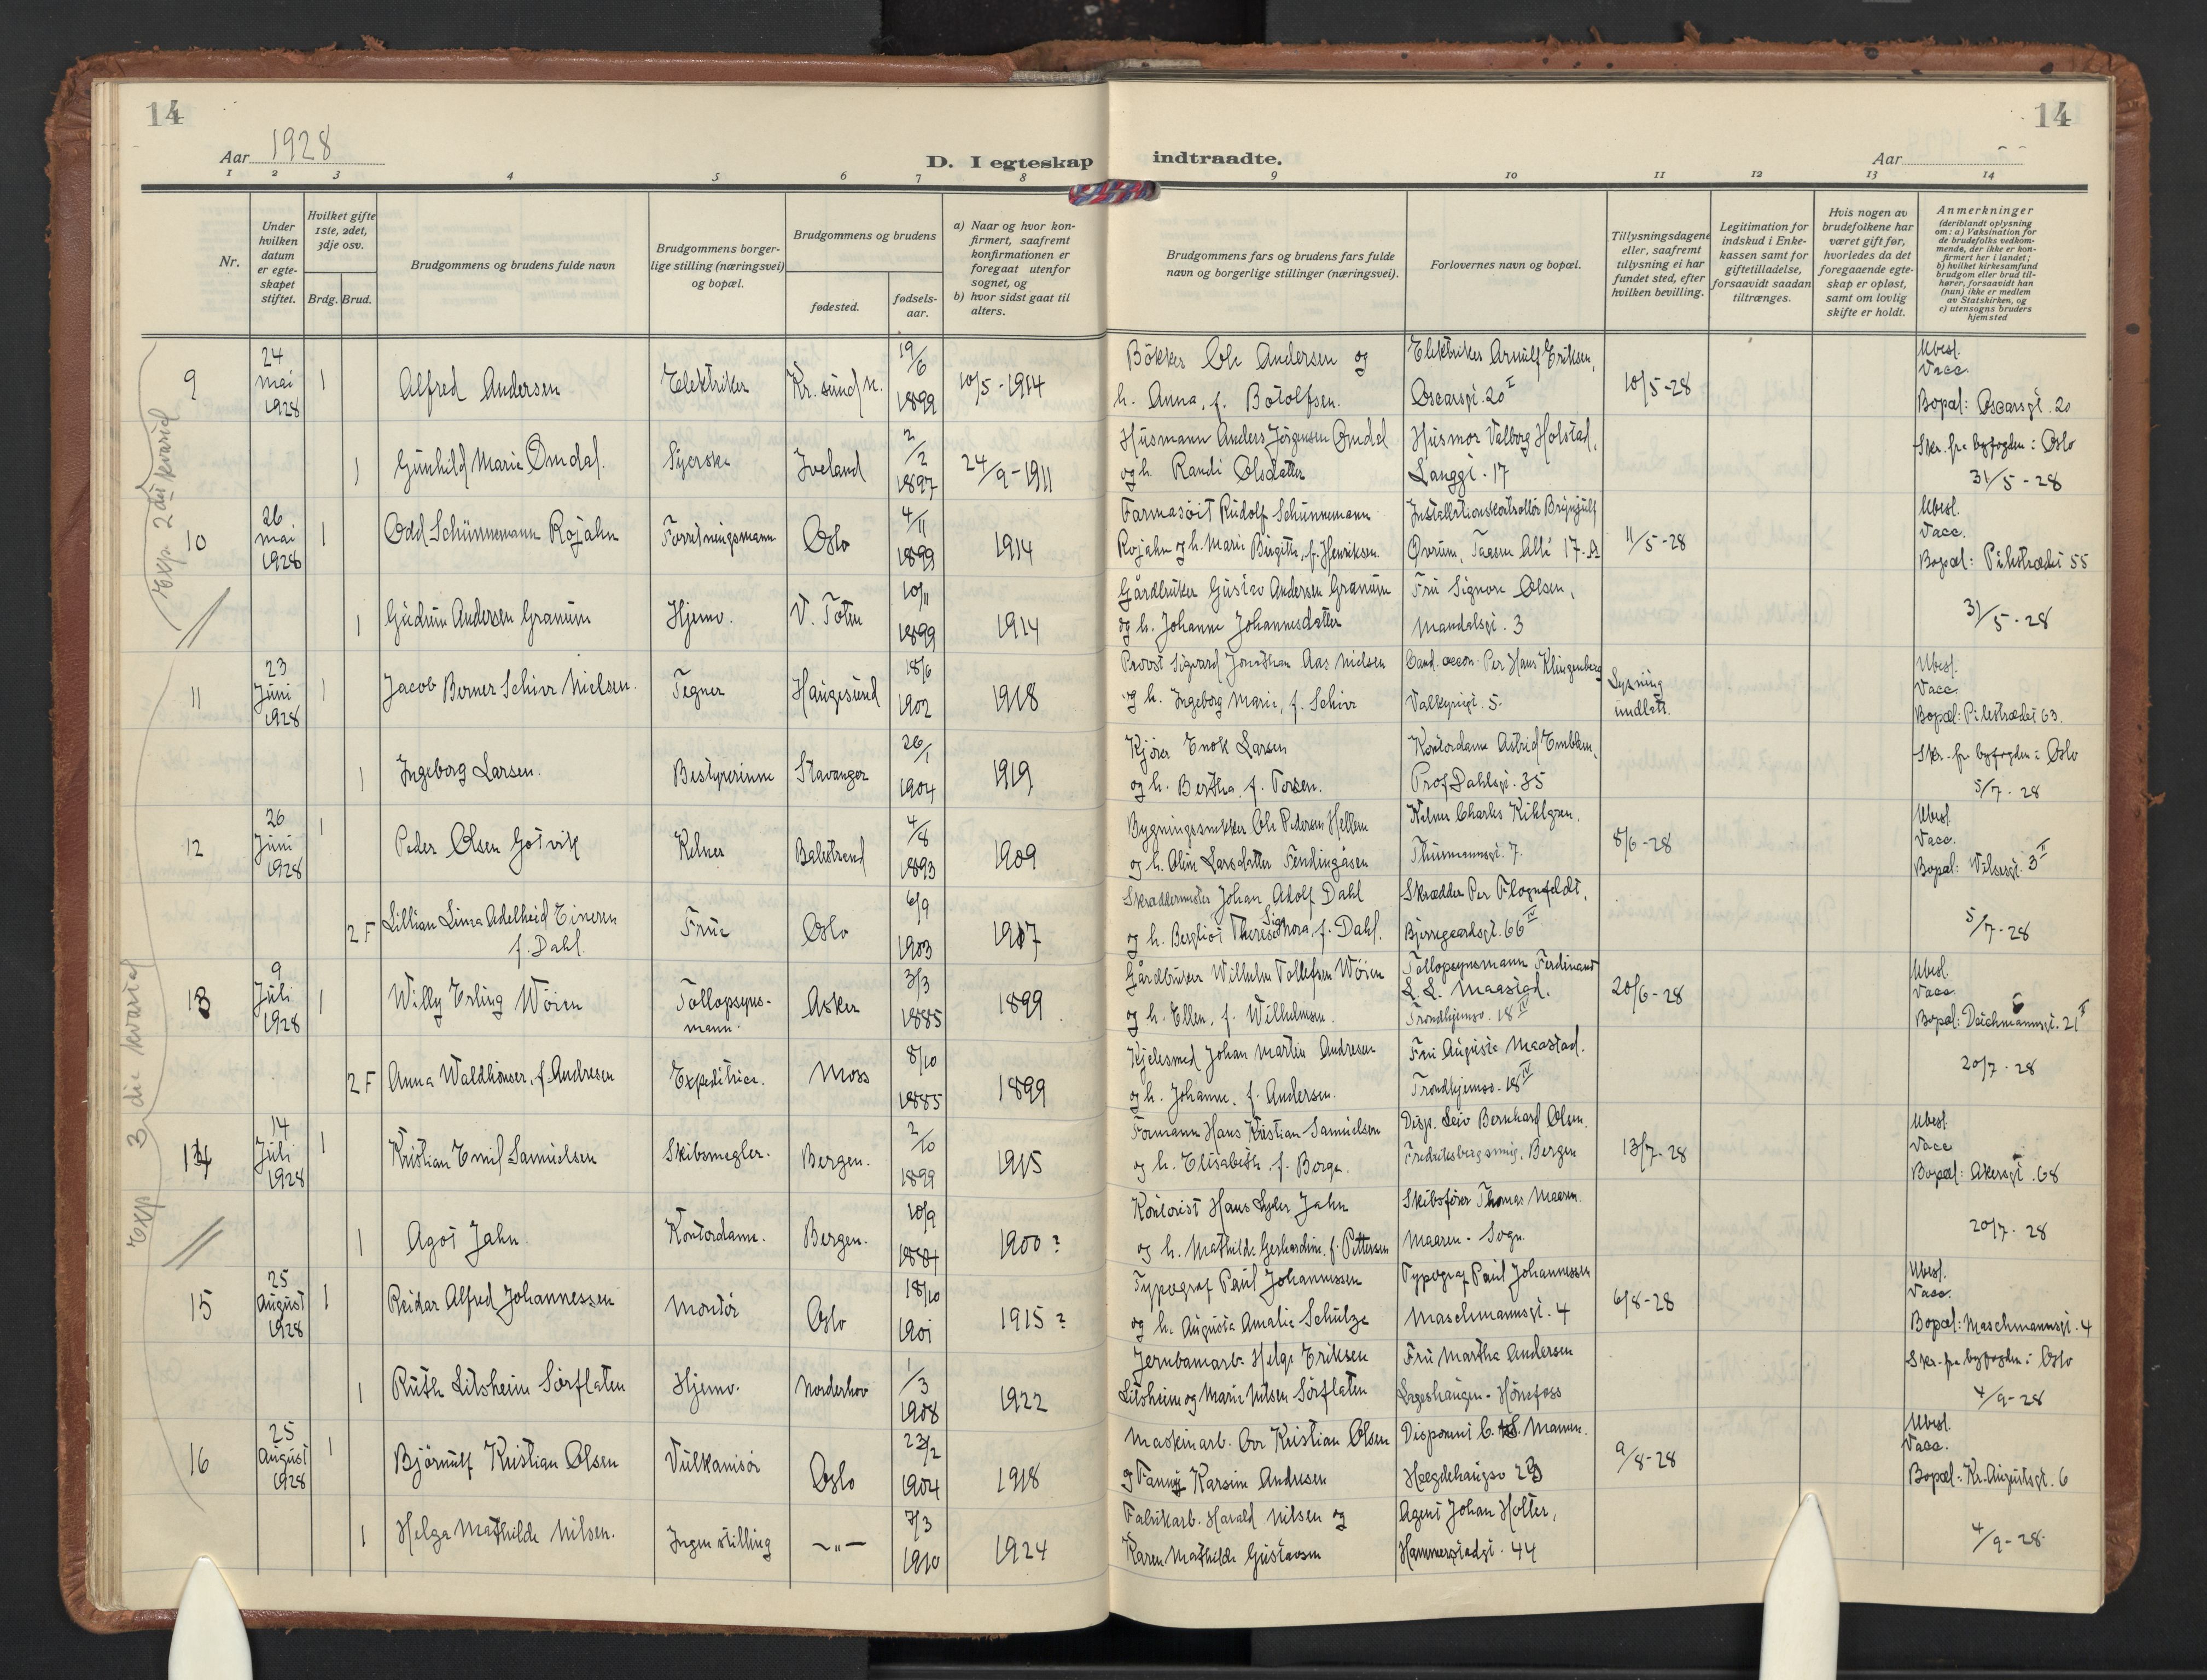 14
14
Aar 1928
D. I egteskap indtraadte.
Aar
1 2 3 4 5 6 7 8 9 10 11 12 13 14
Nr.
Under hvilken datum er egteskapet stiftet.
Hvilket gifte 1ste, 2det, 3dje osv.
Brdg. Brud.
Brudgommens og brudens fulde navn
Brudgommens borgerlige stilling (næringsvei) og bopæl.
Brudgommens og brudens
fødested.
fødselsaar.
a) Naar og hvor konfirmert, saafremt konfirmationen er foregaat utenfor sognet, og
b) hvor sidst gaat til alters.
Brudgommens fars og brudens fars fulde navn og borgerlige stillinger (næringsvei).
Forlovernes navn og bopæl.
Tillysningsdagene eller, saafremt tillysning ei har fundet sted, efter hvilken bevilling.
Legitimation for indskud i Enkekassen samt for giftetilladelse, forsaavidt saadan tiltrænges.
Hvis nogen av brudefolkene har været gift før, hvorledes da det foregaaende egteskap er opløst, samt om lovlig skifte er holdt.
Anmerkninger
(deriblandt oplysning om: a) Vaksination for de brudefolks vedkommende, der ikke er konfirmert her i landet; b) hvilket kirkesamfund brudgom eller brud tilhører, forsaavidt han (hun) ikke er medlem av Statskirken, og c) utensogns bruders hjemsted
Exp 2det kvartal
9
24 mai 1928
1
Alfred Andersen
Elektriker
Kr. sund N.
19/6 1899
10/5-1914
Bökker Ole Andersen og
h. Anna, f. Botolfsen.
Elektriker Arnulf Eriksen,
Oscarsgt. 20 I
10/5-28
Ubesl.
Vacc.
Bopæl: Oscarsgt. 20
1
Gunhild Marie Omdal.
Syerske
Iveland
2/2 1897
24/9-1911
Husmann Anders Jörgensen Omdal
og h. Randi Olsdatter
Husmor Valborg Holstad,
Langgt. 17
Skr. fra byfogden i Oslo
31/5-28
10
26 mai 1928
1
Odd Schünnemann Rojahn
Forretningsmann
Oslo
4/11 1899
1914
Farmasöit Rudolf Schünnemann
Rojahn og h. Marie Birgitte, f. Henriksen.
Installationskontrollör Brynjulf
Øvrum, Taasen Allé 17-A
11/5-28
Ubesl.
Vacc.
Bopæl: Pilestrædet 55
1
Gudrun Andersen Granum
Hjemv.
V. Toten
10/11 1899
1914
Gårdbruker Gustav Andersen Granum
og h. Johanne Johannesdatter
Fru Signora Olsen,
Mandalsgt. 3
31/5-28
11
23 Juni 1928
1
Jacob Berner Schive Nielsen.
Tegner
Haugesund
18/6 1902
1918
Provst Sigvard Jonathan Aas Nielsen
og h. Ingeborg Marie, f. Schive
Cand. oecon. Per Hans Klingenberg
Valkyrigt. 5.
Lysning
undlatt.
Ubesl.
Vacc.
Bopæl: Pilestrædet 63.
1
Ingeborg Larsen.
Bestyrerinne
Stavanger
26/1 1904
1919
Kjörer Enok Larsen
og h. Bertha, f. Torsen.
Kontordame Astrid Emblem,
Prof Dahlsgt. 35
Skr. fra byfogden i Oslo
5/7-28
Exp 3die kvartal
12
26 Juni 1928
1
Peder Olsen Gotvik
Kelner
Balestrand
4/8 1893
1909
Bygningssnekker Ole Pedersen Hellem
og h. Oline Larsdatter Fendingåsen
Kelner Charles Kihlgren,
Thurmannsgt. 7.
8/6-28
Ubesl.
Vacc.
Bopæl: Vibesgt. 3 II
2 F
Lillian Lima Adelheid Einersen
f. Dahl.
Frue
Oslo
6/9 1903
1917
Skræddermester Johan Adolf Dahl
og h. Bergliot Therese Signora, f. Dahl.
Skrædder Per Flognfeldt,
Bjerregaardsgt. 66 IV
5/7-28
13
9 Juli 1928
1
Willy Erling Wöien
Tollopsynsmann.
Asker
3/3 1885
1899
Gårdbruker Wilhelm Tollefsen Wöien
og h. Ellen, f. Wilhelmsen.
Tollopsynsmann Ferdinand
L. L. Maastad,
Trondhjemsv. 18 IV
20/6-28
Ubesl.
Vacc.
Bopæl: Deichmannsgt. 21 II
2 F
Anna Waldhönser, f. Andresen
Expeditrice.
Moss
8/10 1885
1899
Kjelesmed Johan Martin Andresen
og h. Johanne, f. Andersen.
Fru Augusta Maastad.
Trondhjemsv. 18 IV
20/7-28
14
14 Juli 1928
1
Kristian Emil Samuelsen
Skibsmegler.
Bergen.
2/10 1899
1915
Formann Hans Kristian Samuelsen
og h. Elisabeth f. Borge.
Disp. Leiv Bernhard Olsen.
Fredriksbergsmug, Bergen
13/7-28
Ubesl.
Vacc
Bopæl: Akersgt. 68
1
Agot Jahn.
Kontordame.
Bergen.
10/9 1884
1900?
Kontorist Hans Lyder Jahn
og h. Mathilde Gerhardine, f. Pettersen
Skibsförer Thomas Maaren.
Maaren - Sogn.
20/7-28
15
25 August 1928
1
Reidar Alfred Johannessen
Montör
Oslo
18/10 1901
1915?
Typograf Paul Johannessen
og h. Augusta Amalie Schülze
Typograf Paul Johannessen
Maschmannsgt. 4
6/8-28
Ubesl.
Vacc.
Bopæl: Maschmannsgt. 4
1
Ruth Litsheim Sörflaten
Hjemv.
Norderhov
1/3 1908
1922
Jernbanearb. Helge Eriksen
Litsheim og Marie Nilsen Sörflaten
Fru Martha Andersen
Hönefoss
Skr. fra byfogden i Oslo
4/9-28
16
25 August 1928
1
Björnulf Kristian Olsen
Vulkanisör
Oslo
23/2 1904
1918
Maskinarb. Ove Kristian Olsen
og Fanny Karsine Andresen
Disponent C. Maren.
Hægdehaugsv 29
9/8-28
Ubesl.
Vacc.
Bopæl: Kr. Augustsgt. 6
1
Helga Mathilde Nilsen.
Ingen stilling
—"—
7/3 1910
1924
Fabrikarb. Harald Nilsen og
Karen Mathilde Gustavsen
Agent Johan Holter,
Hammerstadgt. 44
4/9-28